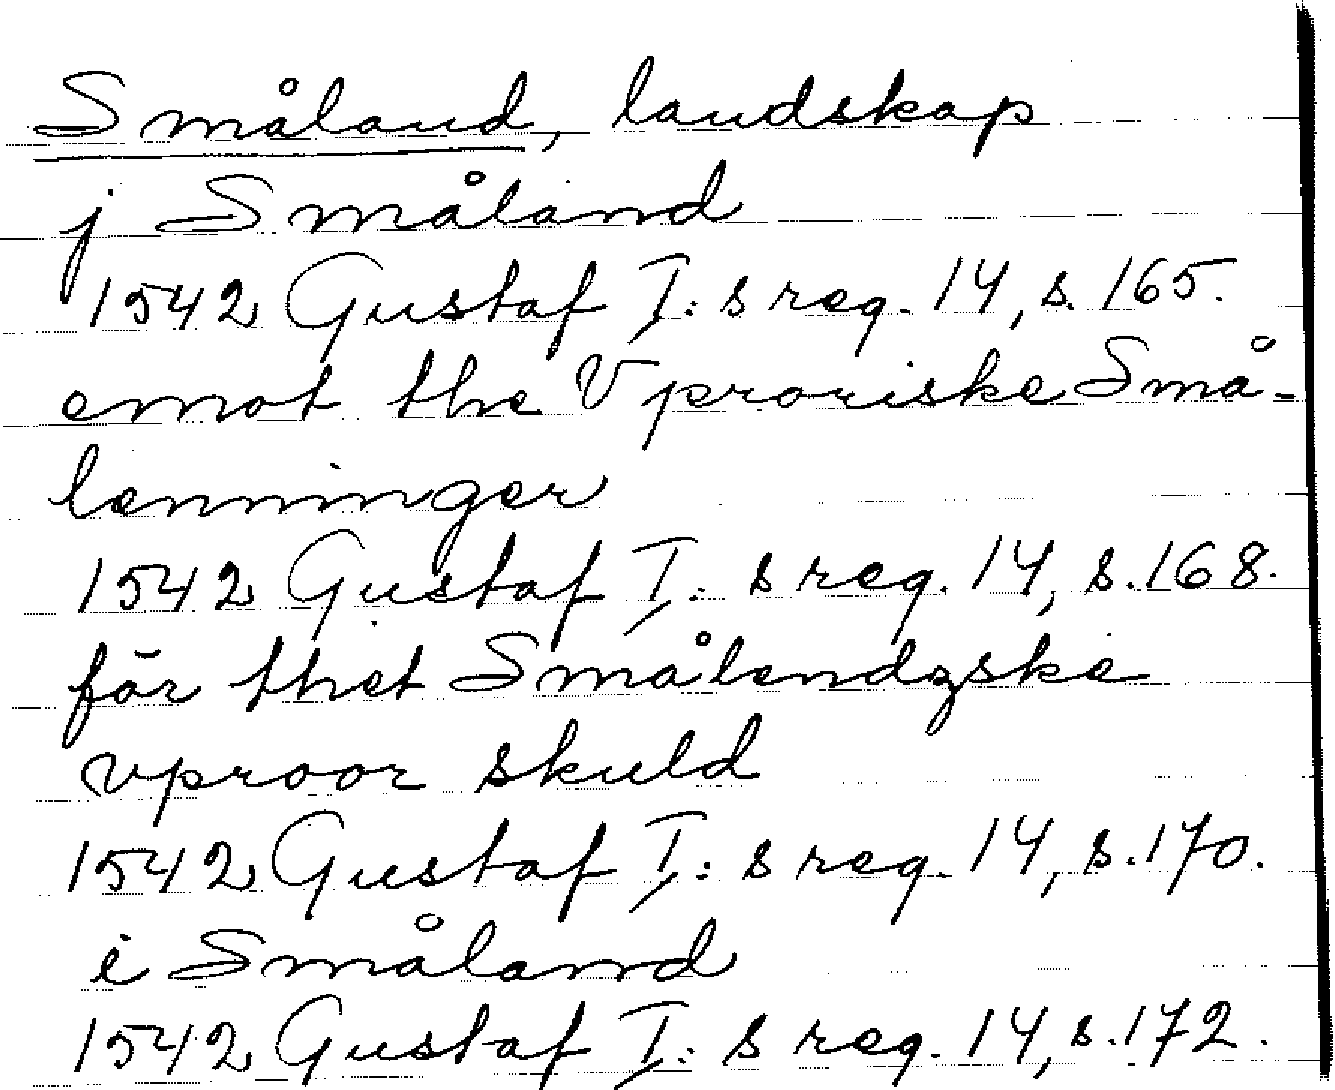 Småland, landskap
j Småland
1542 Gustaf I:s reg. 14, s. 165.
emot the Vproriske Små-
lenninger
1542 Gustaf I:s reg. 14, s. 168.
för thet Smålendzske
vproor skuld
1542 Gustaf I:s reg. 14, s. 170.
i Småland
1542 Gustaf I:s reg. 14, s. 172.